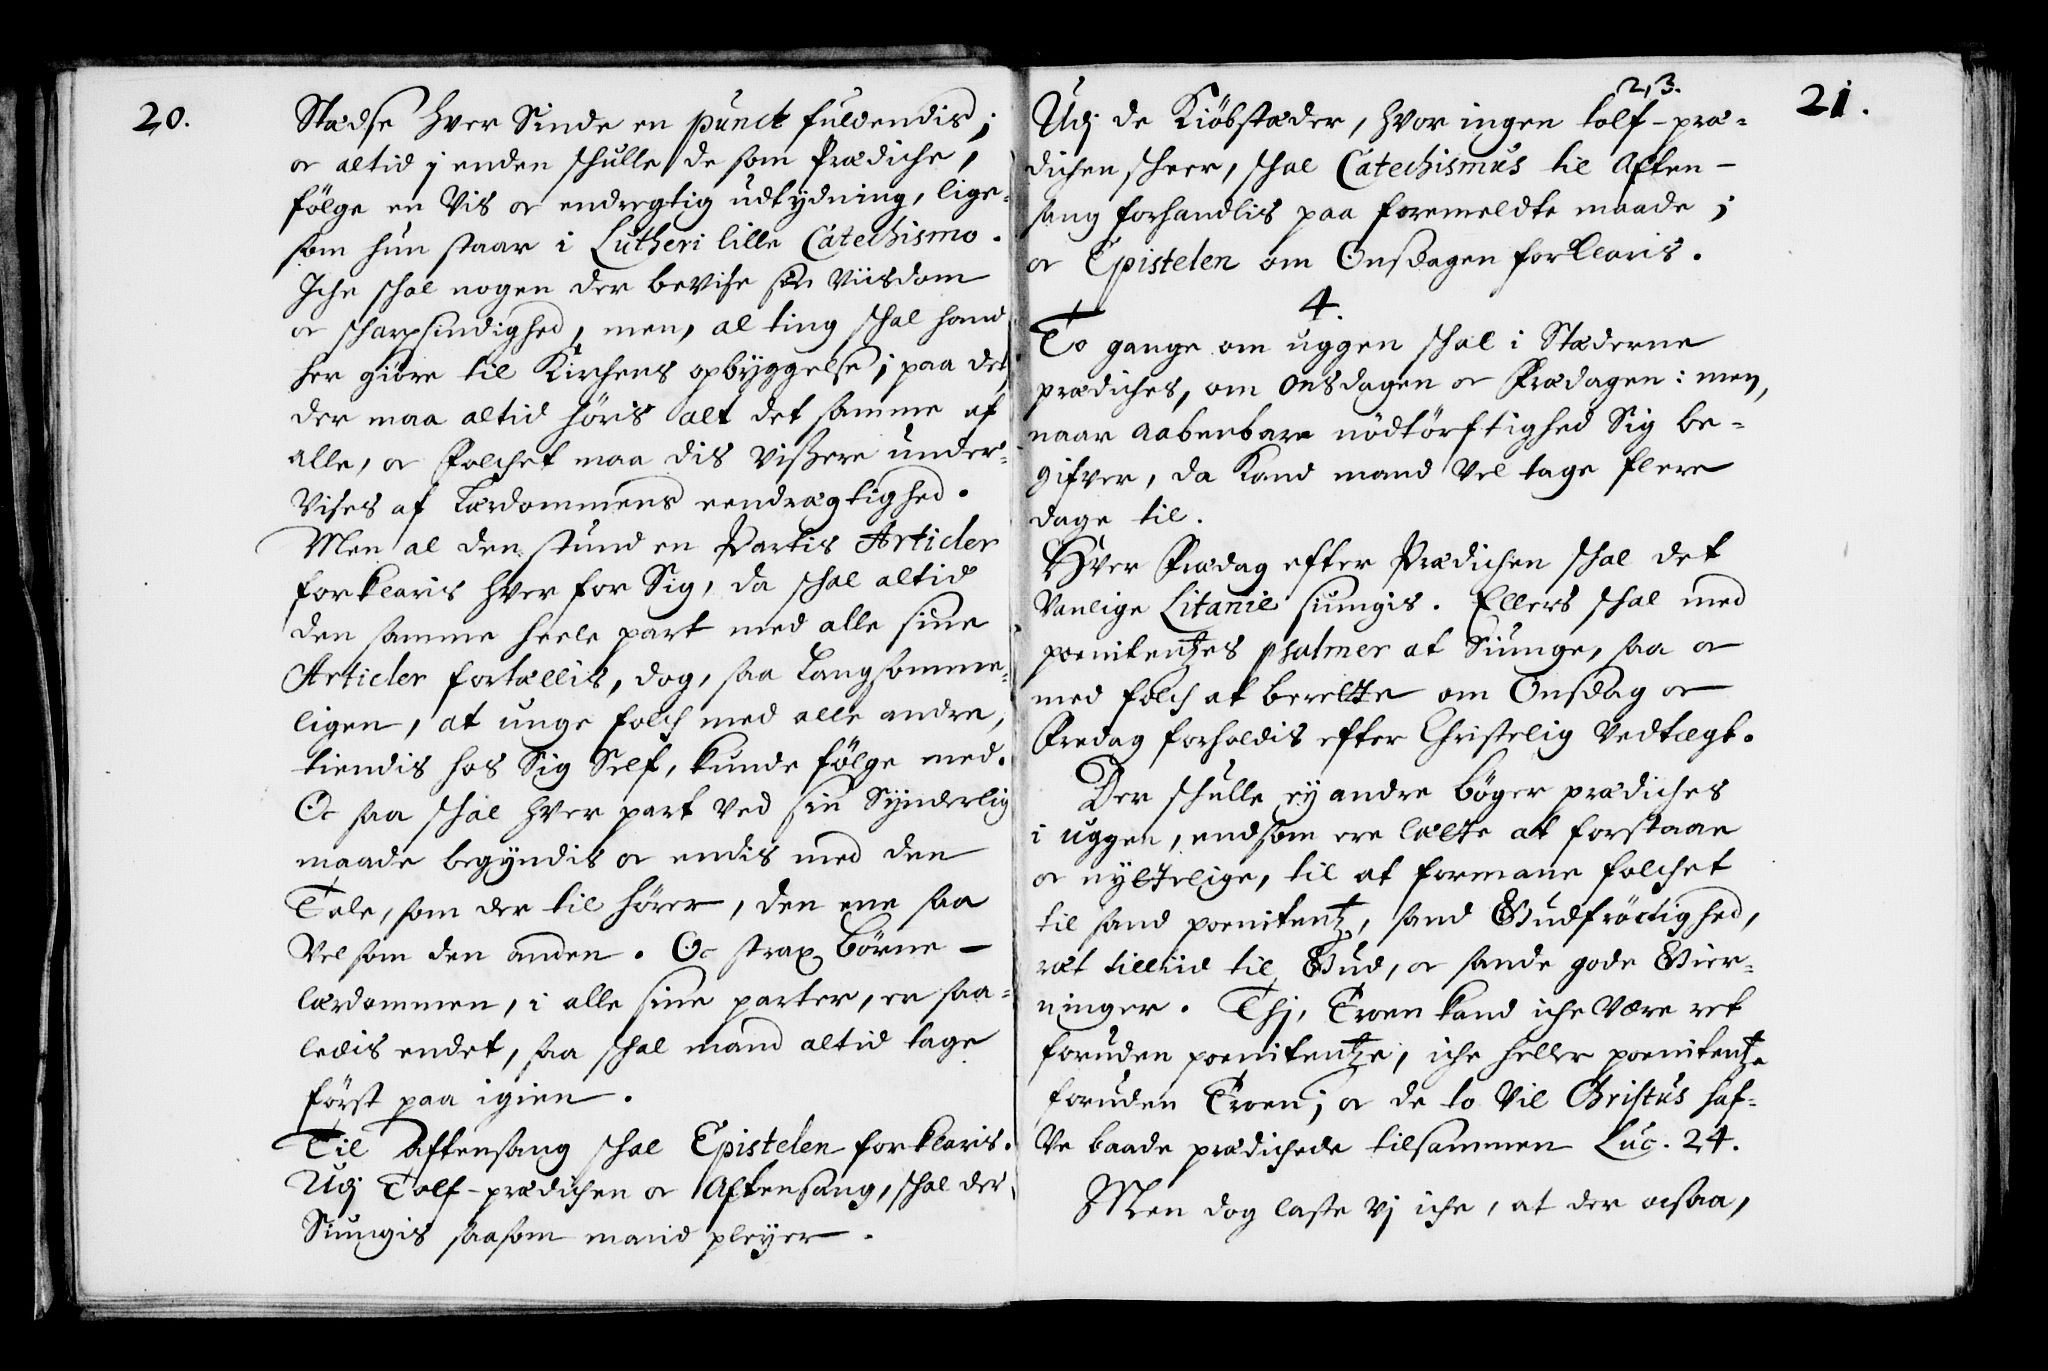 20.
Stædse hver Sinde en punct fuldendis;
oc altid j enden schulle de som Prædiche,
følge en Vis oc endregtig udtydning, lige-
som hun staar i Lutheri lille Catechismo.
Iche schal nogen der bevise sin Viisdom
oc scharpsindighed, men, al ting schal hand
her giøre til Kirchens opbyggelse; paa det
der maa altid høris alt det samme af
alle, oc Folchet maa dis Vissere under-
Vises af Lærdommens eendrægtighed.
Men al den stund en Partis Articler
forklaris hver for Sig, da schal altid
den samme heele part med alle sine
Articler fortællis, dog, saa Langsomme-
ligen, at unge folch med alle andre,
tiendis hos Sig Self, kunde følge med.
Oc saa schal hver part Ved sin Synderlig
maade begyndis oc endis med den
Tale, som der til hører, den ene saa
Vel som den anden. Oc strax Børne-
lærdommen, i alle sine parter, er saa-
ledis endet, saa schal mand altid tage
først paa igien.
Til Aftensang schal Epistelen forklaris.
Udj Tolf-prædichen oc Aftensang, schal der
Siungis saasom mand pleyer.
21.
2,3.
Udj de Kiøbstæder, hvor ingen tolf-præ-
dichen scheer, schal Catechismus til Aften-
sang forhandlis paa foremeldte maade;
oc Epistelen om Onsdagen forklaris.
4.
To gange om uggen schal i Stæderne
prædiches, om Onsdagen oc Frædagen: men,
naar aabenbare nødtørftighed Sig be-
gifver, da Kand mand Vel tage flere
dage til.
Hver Frædag efter Prædichen schal det
Vanlige Litanie siungis. Ellers schal med
poenitentzes psalmer at Siunge, saa oc
med folch at berette om Onsdag oc
Fredag forholdis efter Christelig Vedtegt.
Der schulle ey andre bøger prædiches
i uggen, end som ere lætte at forstaae
oc nyttelige, til at formane folchet
til sand poenitentz, sand Gudfröctighed,
ræt tilliid til Gud, oc sande gode Gier-
ninger. Thj, Troen kand iche Være ret
foruden poenitentze, iche heller poenitentze
foruden Troen; oc de to Vil Christus haf-
Ve baade prædichede tilsammen Luc. 24.
Men dog laste Vj iche, at der ocsaa,